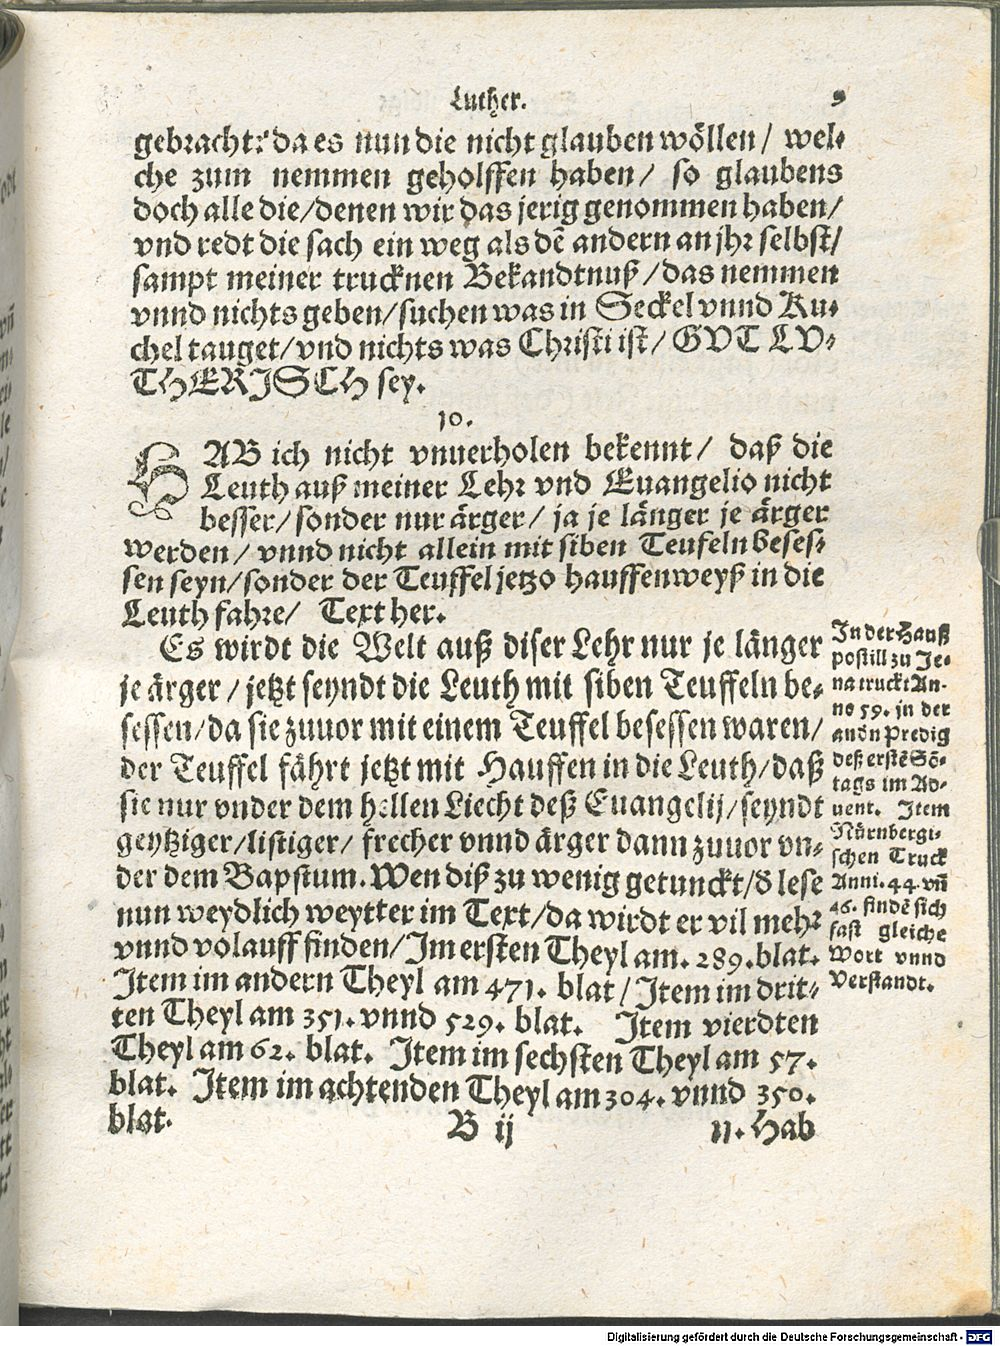 Luther. 9
gebracht: da es nun die nicht glauben wöllen/ wel-
che zum nemmen geholffen haben/ so glaubens
doch alle die/denen wir das jerig genommen haben/
vnd redt die sach ein weg als dē andern an jhr selbst/
sampt meiner trucknen Bekandtnuß/das nemmen
vnnd nichts geben/suchen was in Seckel vnnd Ku-
chel tauget/vnd nichts was Christi ist/ GVT LV-
THERJSCH sey.
10.
HAB ich nicht vnuerholen bekennt/ daß die
Leuth auß meiner Lehr vnd Euangelio nicht
besser/sonder nur ärger/ ja je länger je ärger
werden/ vnnd nicht allein mit siben Teufeln beses-
sen seyn/sonder der Teuffel jetzo hauffenweyß in die
Leuth fahre/ Text her.
Es wirdt die Welt auß diser Lehr nur je länger
je ärger/jetzt seyndt die Leuth mit siben Teuffeln be-
sessen/da sie zuuor mit einem Teuffel besessen waren/
der Teuffel fährt jetzt mit Hauffen in die Leuth/daß
sie nur vnder dem hellen Liecht deß Euangelij/seyndt
geytziger/listiger/ frecher vnnd ärger dann zuuor vn-
der dem Bapstum. Wen diß zu wenig getunckt/d̄ lese
nun weydlich weytter im Text/da wirdt er vil mehr
vnnd volauff finden/Jm ersten Theyl am. 289. blat.
Jtem im andern Theyl am 471. blat/Jtem im drit-
ten Theyl am 351. vnnd 529. blat. Jtem vierdten
Theyl am 62. blat. Jtem im sechsten Theyl am 57.
blat. Jtem im achtenden Theyl am 304. vnnd 350.
blat.
Jn der Hauß
postill zu Je-
na truckt An-
no 59. in der
andn Predig
deß erstē Sō-
tags im Ad-
uent. Jtem
Nürnbergi-
schen Truck
Anni. 44 vn̄
46. findē sich
fast gleiche
Wort vnnd
Verstandt.
B ij 11. Hab
Digitalisierung gefördert durch die Deutsche Forschungsgemeinschaft - DFG